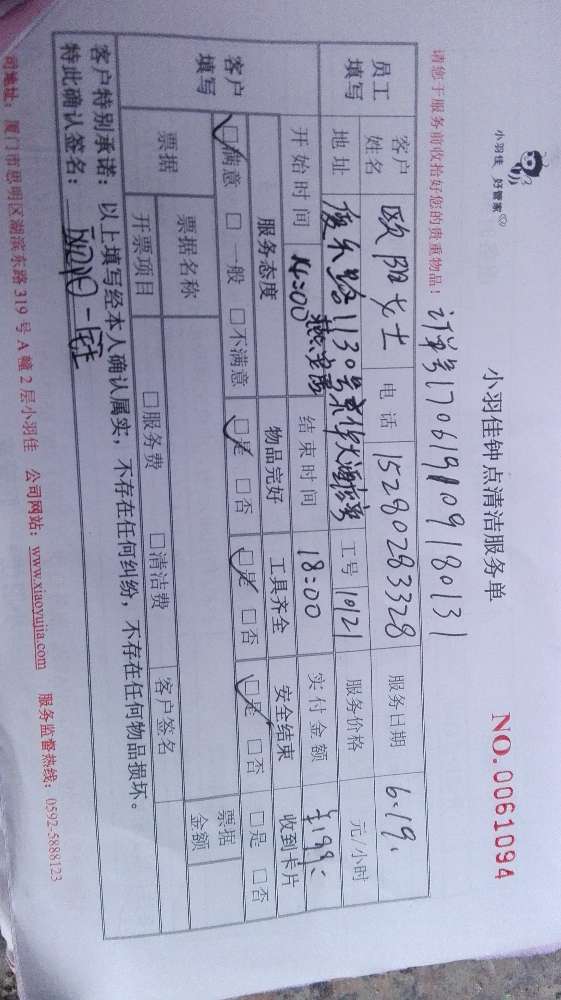 小羽佳 好管家
小羽佳钟点清洁服务单
NO.0061094
请您于服务前收拾好您的贵重物品!
订单号170619109180131
员工填写
客户姓名 欧阳女士 电话 15280283328 服务日期 6.19.
地址 厦禾路1130号 工号 1012 服务价格 元/小时
开始时间 14:00 结束时间 18:00 实付金额 ¥199:
客户填写
服务态度 物品完好 工具齐全 安全结束 收到卡片
☑满意 □一般 □不满意 ☑是 □否 ☑是 □否 ☑是 □否 □是 □否
票据 票据名称 票据金额
开票项目 □服务费 □清洁费 客户签名
客户特别承诺:以上填写经本人确认属实,不存在任何纠纷,不存在任何物品损坏。
特此确认签名:
司地址:厦门市思明区湖滨东路319号A幢2层小羽佳 公司网站:www.xiaoyujia.com 服务监督热线:0592-5888123